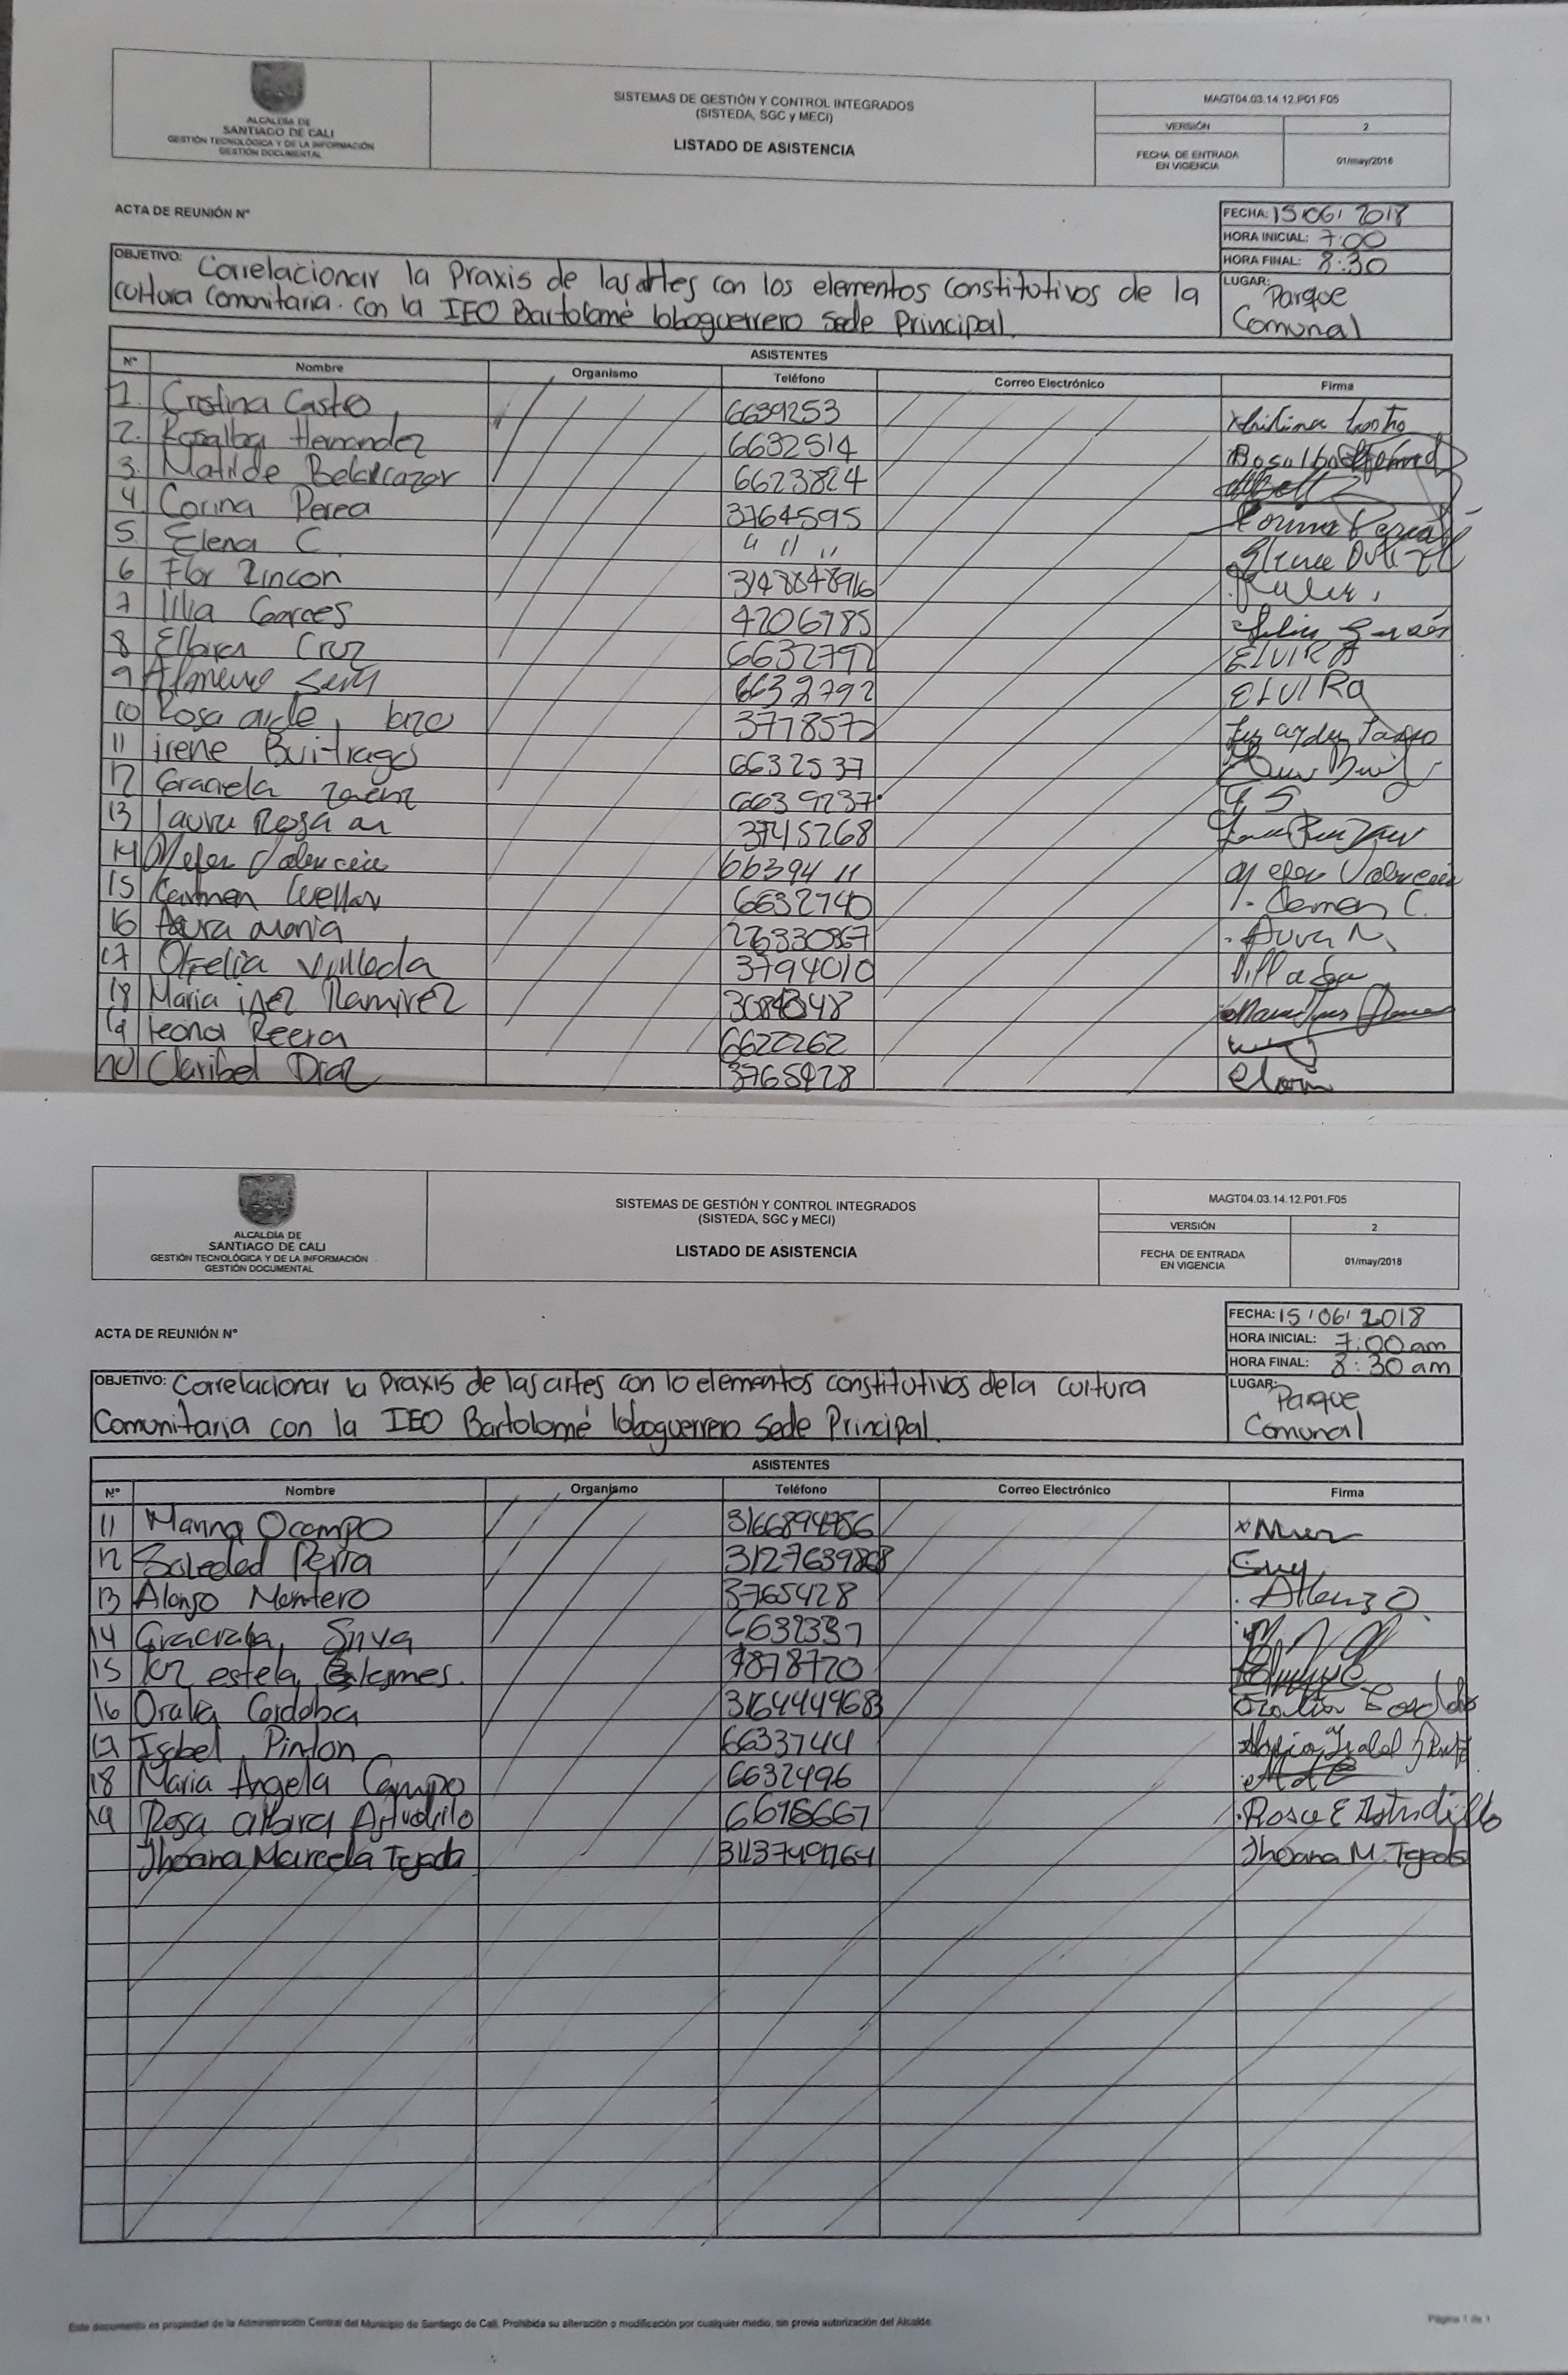 ALCALDÍA DE
SANTIAGO DE CALI
GESTIÓN TECNOLÓGICA Y DE LA INFORMACIÓN
GESTIÓN DOCUMENTAL
SISTEMAS DE GESTIÓN Y CONTROL INTEGRADOS
(SISTEDA, SGC y MECI)
LISTADO DE ASISTENCIA
MAGT04.03.14.12.P01.F05
VERSIÓN 2
FECHA DE ENTRADA
EN VIGENCIA 01/may/2018
ACTA DE REUNIÓN N°
FECHA: 15/06/2018
HORA INICIAL: 7:00
HORA FINAL: 8:30
LUGAR: Parque
Comunal
OBJETIVO: Correlacionar la Praxis de las artes con los elementos constitutivos de la
cultura comunitaria. con la IEO Bartolomé loboguerrero Sede Principal.
ASISTENTES
N° Nombre Organismo Teléfono Correo Electrónico Firma
1. Cristina Castro 6639253
2. Rosalba Hernandez 6632514
3. Matilde Belalcazar 6623824
4. Corina Perea 3764595 Corina Perea
5. Elena C. " " "
6 Flor Rincon 3148848916
7 lilia Garces 4206785
8 Elbira Cruz 6632792 ELVIRA
9 6632792 ELVIRA
10 Rosa aide 3778572
11 irene Buitrago 6632537
12 Graciela 6639237 G.S.
13 laura Rosa 3745268
14 Valencia 6639411 Valencia
15 Carmen Cuellar 6632740 Carmen C.
16 Aura maria 226330867 Aura M.
17 Ofelia Villada 3794010 Villada
18 Maria inez Ramirez
19 leonor 6620262
20 Claribel Diaz 3765428
ALCALDÍA DE
SANTIAGO DE CALI
GESTIÓN TECNOLÓGICA Y DE LA INFORMACIÓN
GESTIÓN DOCUMENTAL
SISTEMAS DE GESTIÓN Y CONTROL INTEGRADOS
(SISTEDA, SGC y MECI)
LISTADO DE ASISTENCIA
MAGT04.03.14.12.P01.F05
VERSIÓN 2
FECHA DE ENTRADA
EN VIGENCIA 01/may/2018
ACTA DE REUNIÓN N°
FECHA: 15/06/2018
HORA INICIAL: 7:00 am
HORA FINAL: 8:30 am
LUGAR: Parque
Comunal
OBJETIVO: Correlacionar la Praxis de las artes con lo elementos constitutivos de la cultura
Comunitaria con la IEO Bartolomé loboguerrero Sede Principal.
ASISTENTES
N° Nombre Organismo Teléfono Correo Electrónico Firma
11 Marina Ocampo 3166894786
12 Soledad
13 Alonso Montero 3765428
14 6632337
15 luz estela 4878720
16 Oralia Cordoba 3164449683
17 Isabel Pinlon 6633744
18 Maria Angela Campo 6632496
19 Rosa albira Astudillo Rosa E Astudillo
Jhoana Marcela Tejada Jhoana M. Tejada
Este documento es propiedad de la Administración Central del Municipio de Santiago de Cali. Prohibida su alteración o modificación por cualquier medio, sin previa autorización del Alcalde.
Página 1 de 1